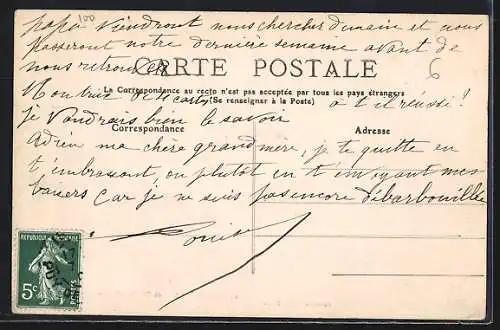 100
papa viendront nous chercher demain et nous
passeront notre dernière semaine avant de
nous retrouver
6
CARTE POSTALE
La Correspondance au recto n'est pas acceptée par tous les pays étrangers
(Se renseigner à la Poste)
Mon truc de cartes a t'il réussi?
je voudrais bien le savoir
Correspondance
Adresse
Adieu ma chère grand'mère, je te quitte en
t'embrassant, ou plutôt en t'envoyant mes
baisers car je ne suis pas encore débarbouillée
Louise
REPUBLIQUE FRANÇAISE
5c
POSTES